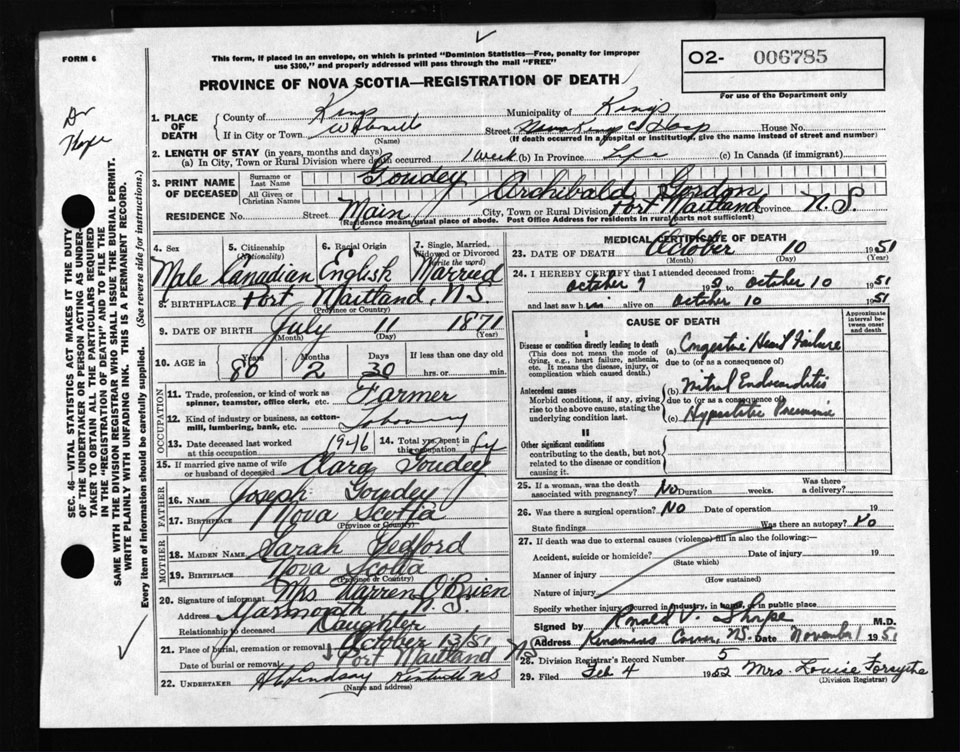 FORM 6
This form, if placed in an envelope, on which is printed "Dominion Statistics—Free, penalty for improper
use $300," and properly addressed will pass through the mail "FREE"
PROVINCE OF NOVA SCOTIA—REGISTRATION OF DEATH
O2- 006785
For use of the Department only
Dr
SEC. 46—VITAL STATISTICS ACT MAKES IT THE DUTY
OF THE UNDERTAKER OR PERSON ACTING AS UNDER-
TAKER TO OBTAIN ALL THE PARTICULARS REQUIRED
IN THE "REGISTRATION OF DEATH" AND TO FILE THE
SAME WITH THE DIVISION REGISTRAR WHO SHALL ISSUE THE BURIAL PERMIT.
WRITE PLAINLY WITH UNFADING INK. THIS IS A PERMANENT RECORD.
Every item of information should be carefully supplied. (See reverse side for instructions.)
1. PLACE OF DEATH
County of Kings Municipality of Kings
If in City or Town Street House No.
(Name) (If death occurred in a hospital or institution, give the name instead of street and number)
2. LENGTH OF STAY (in years, months and days)
(a) In City, Town or Rural Division where death occurred 1 week (b) In Province Life (c) In Canada (if immigrant)
3. PRINT NAME OF DECEASED
Surname or Last Name Goudey
All Given or Christian Names Archibald Gordon
RESIDENCE No. Street Main City, Town or Rural Division Port Maitland Province N.S.
(Residence means usual place of abode. Post Office Address for residents in rural parts not sufficient)
4. Sex 5. Citizenship (Nationality) 6. Racial Origin 7. Single, Married, Widowed or Divorced (write the word)
Male Canadian English Married
8. BIRTHPLACE Port Maitland, N.S.
(Province or Country)
9. DATE OF BIRTH July 11 1871
(Month) (Day) (Year)
10. AGE in Years 80 Months 2 Days 30 If less than one day old
hrs. or min.
OCCUPATION
11. Trade, profession, or kind of work as
spinner, teamster, office clerk, etc. Farmer
12. Kind of industry or business, as cotton-
mill, lumbering, bank, etc.
13. Date deceased last worked
at this occupation 1946 14. Total yrs. spent in
this occupation
15. If married give name of wife
or husband of deceased Clara Goudey
FATHER
16. NAME Joseph Goudey
17. BIRTHPLACE Nova Scotia
(Province or Country)
MOTHER
18. MAIDEN NAME Sarah Tedford
19. BIRTHPLACE Nova Scotia
(Province or Country)
20. Signature of informant Mrs Warren O'Brien
Address Yarmouth N.S.
Relationship to deceased Daughter
21. Place of burial, cremation or removal October 13/51
Date of burial or removal Port Maitland NS
22. UNDERTAKER H Lindsay Kentville NS
(Name and address)
MEDICAL CERTIFICATE OF DEATH
23. DATE OF DEATH October 10 1951
(Month) (Day) (Year)
24. I HEREBY CERTIFY that I attended deceased from:
October 7 1951 to October 10 1951
and last saw him alive on October 10 1951
CAUSE OF DEATH
Approximate interval between onset and death
I
Disease or condition directly leading to death
(This does not mean the mode of
dying, e.g., heart failure, asthenia,
etc. It means the disease, injury, or
complication which caused death.)
(a) Congestive Heart Failure
due to (or as a consequence of)
Antecedent causes
Morbid conditions, if any, giving
rise to the above cause, stating the
underlying condition last.
(b) Mitral Endocarditis
due to (or as a consequence of)
(c) Hypostatic Pneumonia
II
Other significant conditions
contributing to the death, but not
related to the disease or condition
causing it.
25. If a woman, was the death
associated with pregnancy? No Duration weeks. Was there a delivery?
26. Was there a surgical operation? No Date of operation 19
State findings Was there an autopsy? No
27. If death was due to external causes (violence) fill in also the following:—
Accident, suicide or homicide? Date of injury 19
(State which)
Manner of injury
(How sustained)
Nature of injury
Specify whether injury occurred in industry, in home, or in public place
Signed by Ronald V. M.D.
Address Kinsmans Corner, N.S. Date November 1 1951
28. Division Registrar's Record Number 5
29. Filed Feb 4 1952 Mrs. Louise Forsythe
(Division Registrar)